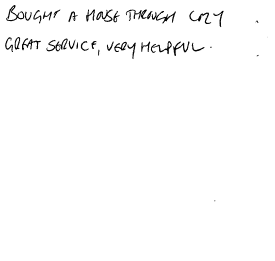 BOUGHT A HOUSE THROUGH COZY
GREAT SERVICE, VERY HELPFUL.